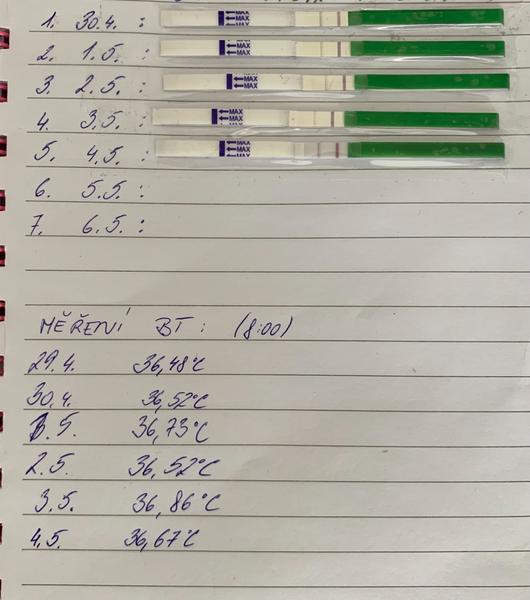 1. 30.4. : ←MAX ←MAX
2. 1.5. : ←MAX ←MAX
3. 2.5. : ←MAX ←MAX
4. 3.5. : ←MAX ←MAX
5. 4.5. : ←MAX ←MAX
6. 5.5. :
7. 6.5. :
MĚŘENÍ BT : (8:00)
29.4. 36,48°C
30.4. 36,52°C
1.5. 36,73°C
2.5. 36,52°C
3.5. 36,86°C
4.5. 36,67°C